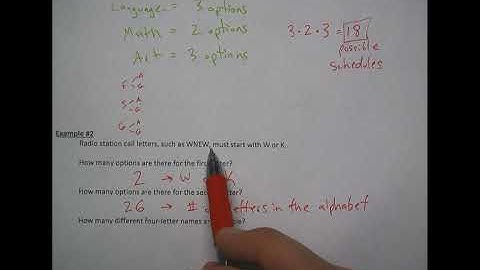 Language = 3 options
Math = 2 options
Art = 3 options
3·2·3 = 18
possible
schedules
F A G
S A G
G A G
Example #2
Radio station call letters, such as WNEW, must start with W or K.
How many options are there for the first letter?
2 → W K
How many options are there for the letter?
26 → # letters in the alphabet
How many different four-letter names are